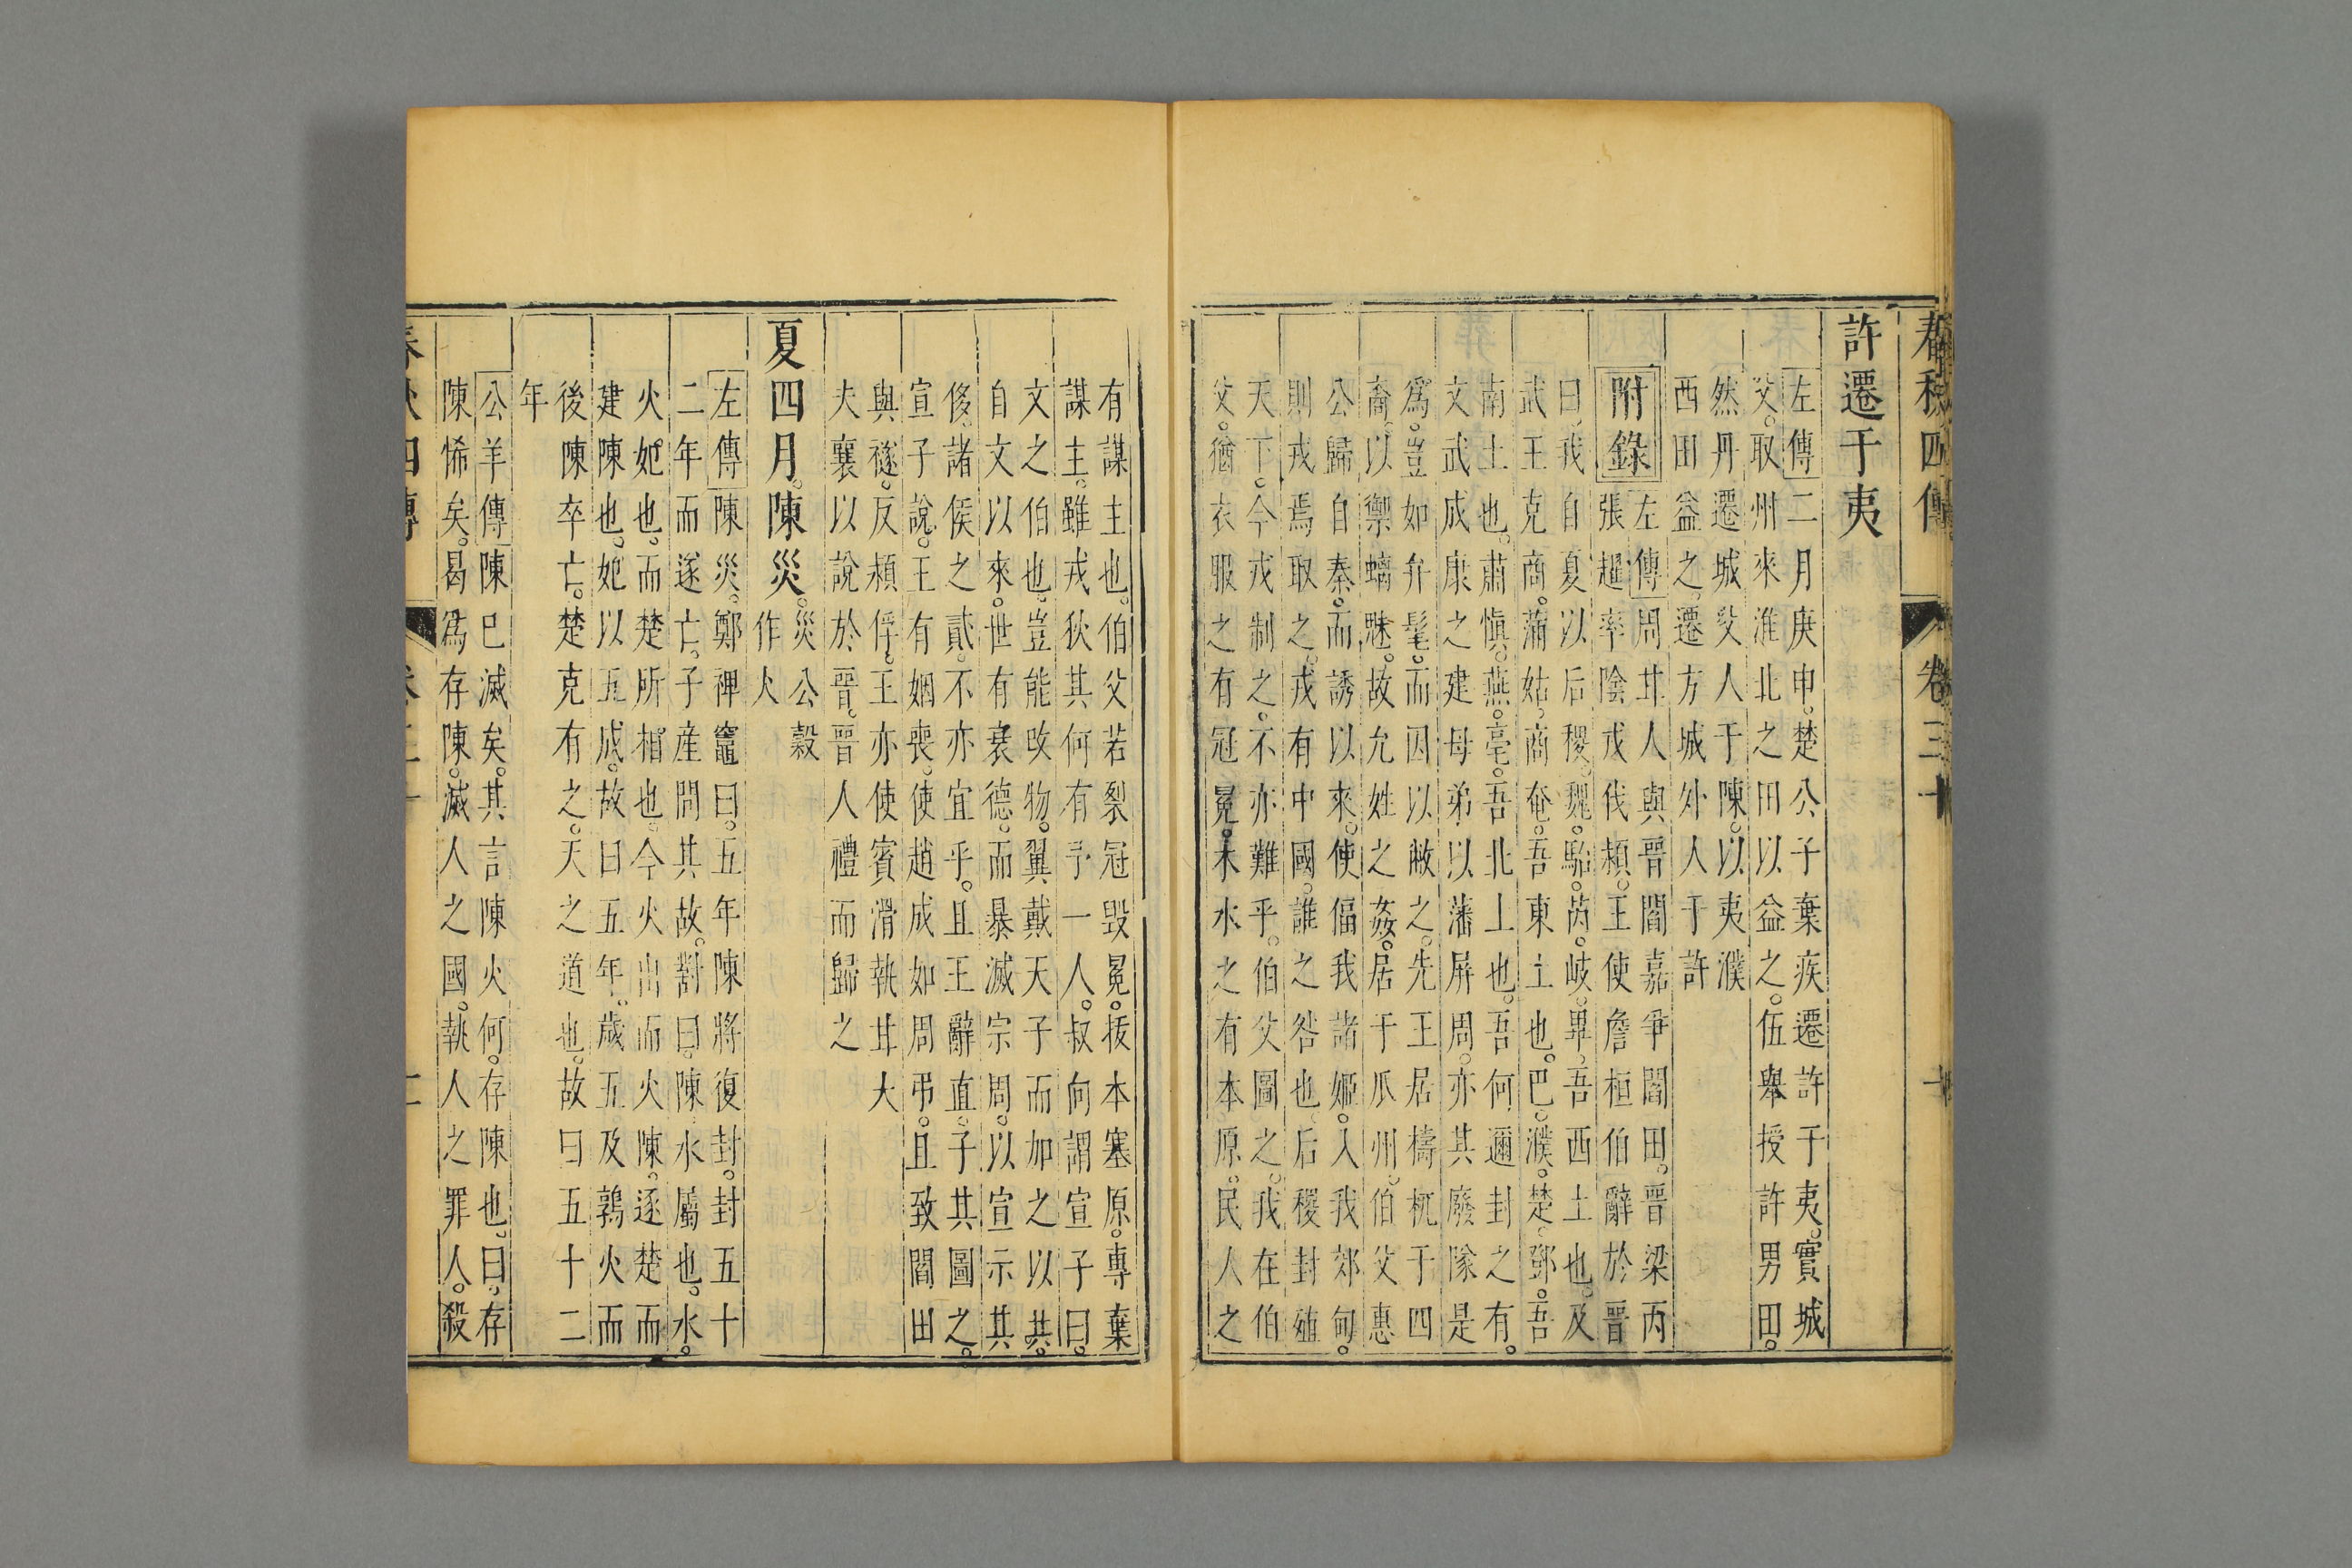 春秋四傳 卷三十 十
許遷于夷
左傳二月庚申。楚公子棄疾遷許于夷。實城
父。取州來淮北之田以益之。伍舉授許男田。
然丹遷城父人于陳。以夷濮
西田益之。遷方城外人于許
附錄
左傳周甘人與晉閻嘉爭閻田。晉梁丙
張趯率陰戎伐潁。王使詹桓伯辭於晉
曰。我自夏以后稷。魏。駘。芮。岐。畢。吾西土也。及
武王克商。蒲姑。商奄。吾東土也。巴。濮。楚。鄧。吾
南土也。肅慎。燕。亳。吾北土也。吾何邇封之有。
文武成康之建母弟。以藩屏周。亦其廢隊是
爲。豈如弁髦。而因以敝之。先王居檮杌于四
裔。以禦螭魅。故允姓之姦。居于瓜州。伯父惠
公歸自秦。而誘以來。使偪我諸姬。入我郊甸。
則戎焉取之。戎有中國。誰之咎也。后稷封殖
天下。今戎制之。不亦難乎。伯父圖之。我在伯
父。猶衣服之有冠冕。木水之有本原。民人之
有謀主也。伯父若裂冠毀冕。拔本塞原。專棄
謀主。雖戎狄其何有予一人。叔向謂宣子曰。
文之伯也。豈能改物。翼戴天子而加之以共。
自文以來。世有衰德。而暴滅宗周。以宣示其
侈。諸侯之貳。不亦宜乎。且王辭直。子其圖之。
宣子說。王有姻喪。使趙成如周弔。且致閻田
與襚。反潁俘。王亦使賓滑執甘大
夫襄以說於晉。晉人禮而歸之
夏四月。陳災。
災公穀
作火
左傳陳災。鄭裨竈曰。五年陳將復封。封五十
二年而遂亡。子產問其故。對曰。陳水屬也。水。
火妃也。而楚所相也。今火出而火陳。逐楚而
建陳也。妃以五成。故曰五年。歲五及鶉火而
後陳卒亡。楚克有之。天之道也。故曰五十二
年
公羊傳陳已滅矣。其言陳火何。存陳也。曰。存
陳悕矣。曷爲存陳。滅人之國。執人之罪人。殺
春秋四傳